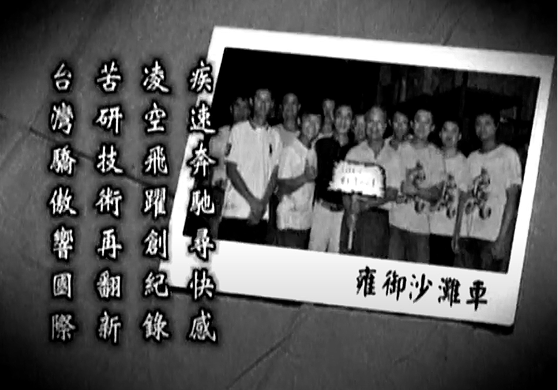 疾速奔馳尋快感
凌空飛躍創紀錄
苦研技術再翻新
台灣驕傲響國際
雍御沙灘車